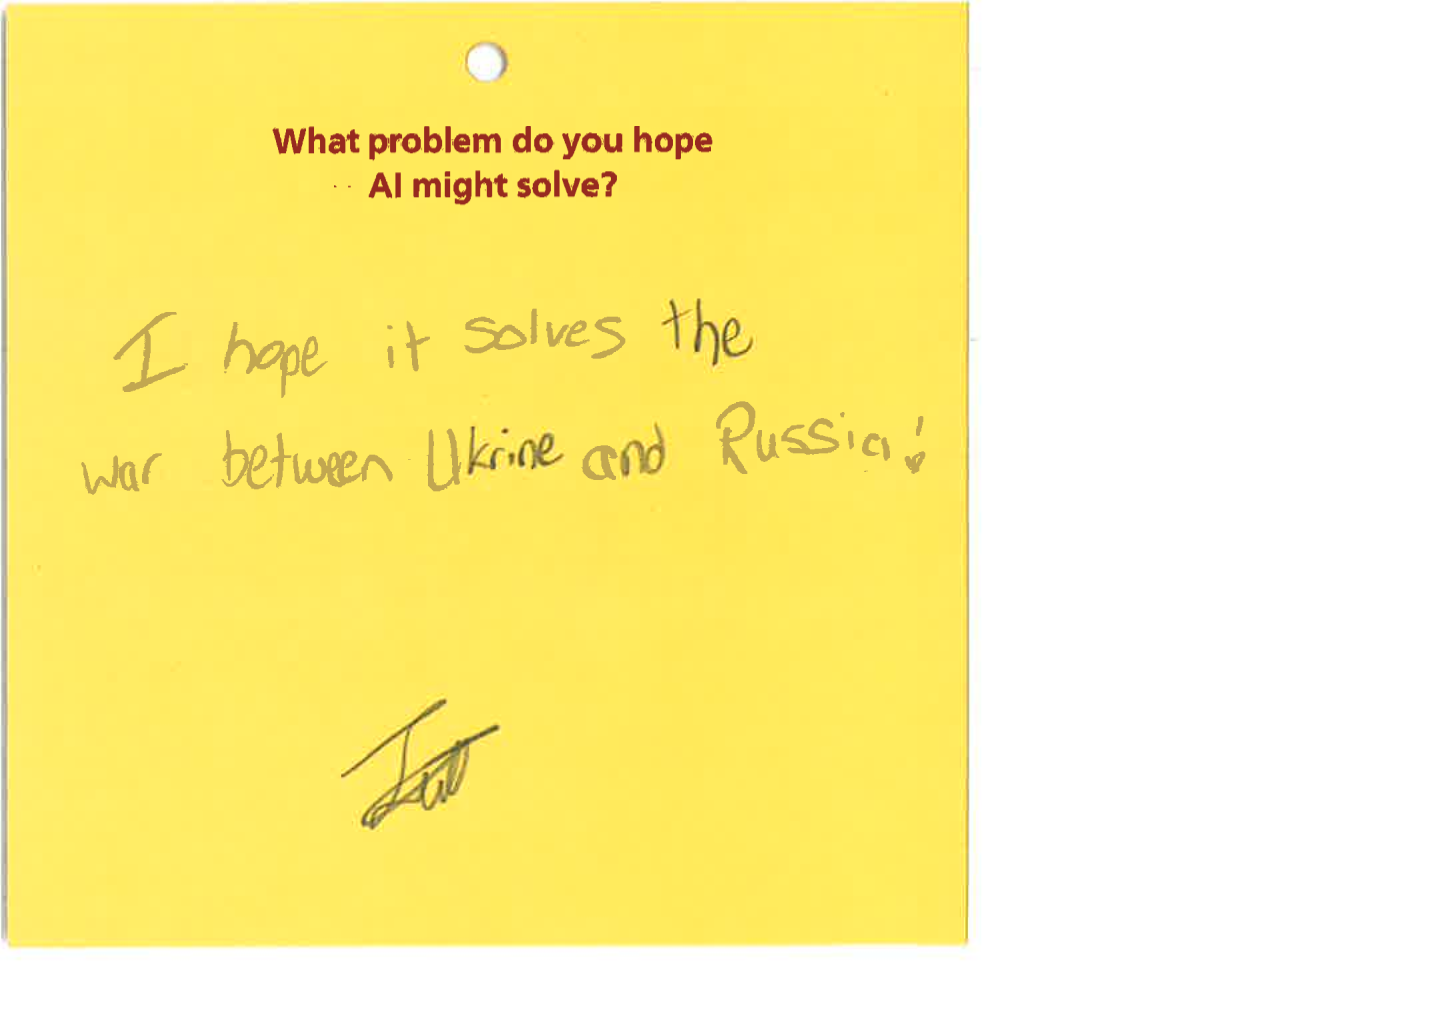 What problem do you hope
AI might solve?
I hope it solves the
war between Ukrine and Russia!